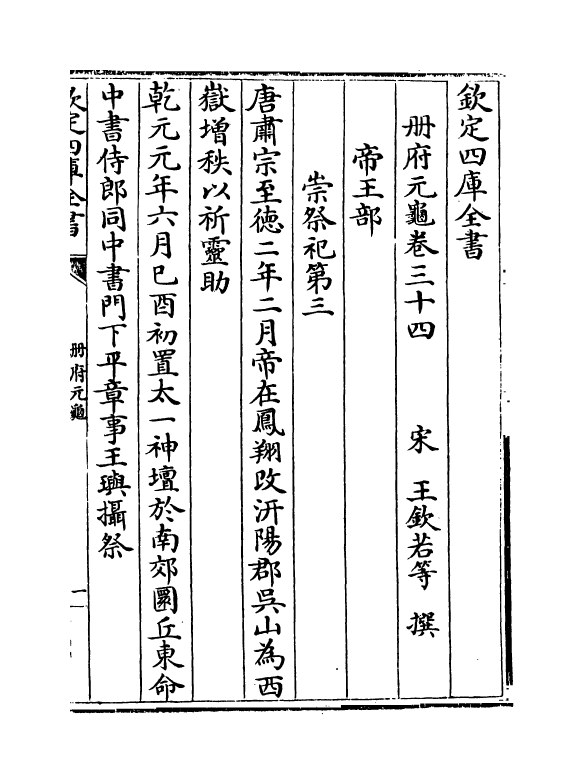 欽定四庫全書
册府元龜卷三十四　宋　王欽若等　撰
帝王部
崇祭祀第三
唐肅宗至徳二年二月帝在鳳翔改汧陽郡吳山為西
嶽增秩以祈靈助
乾元元年六月巳酉初置太一神壇於南郊圜丘東命
中書侍郎同中書門下平章事王璵攝祭
欽定四庫全書
册府元龜